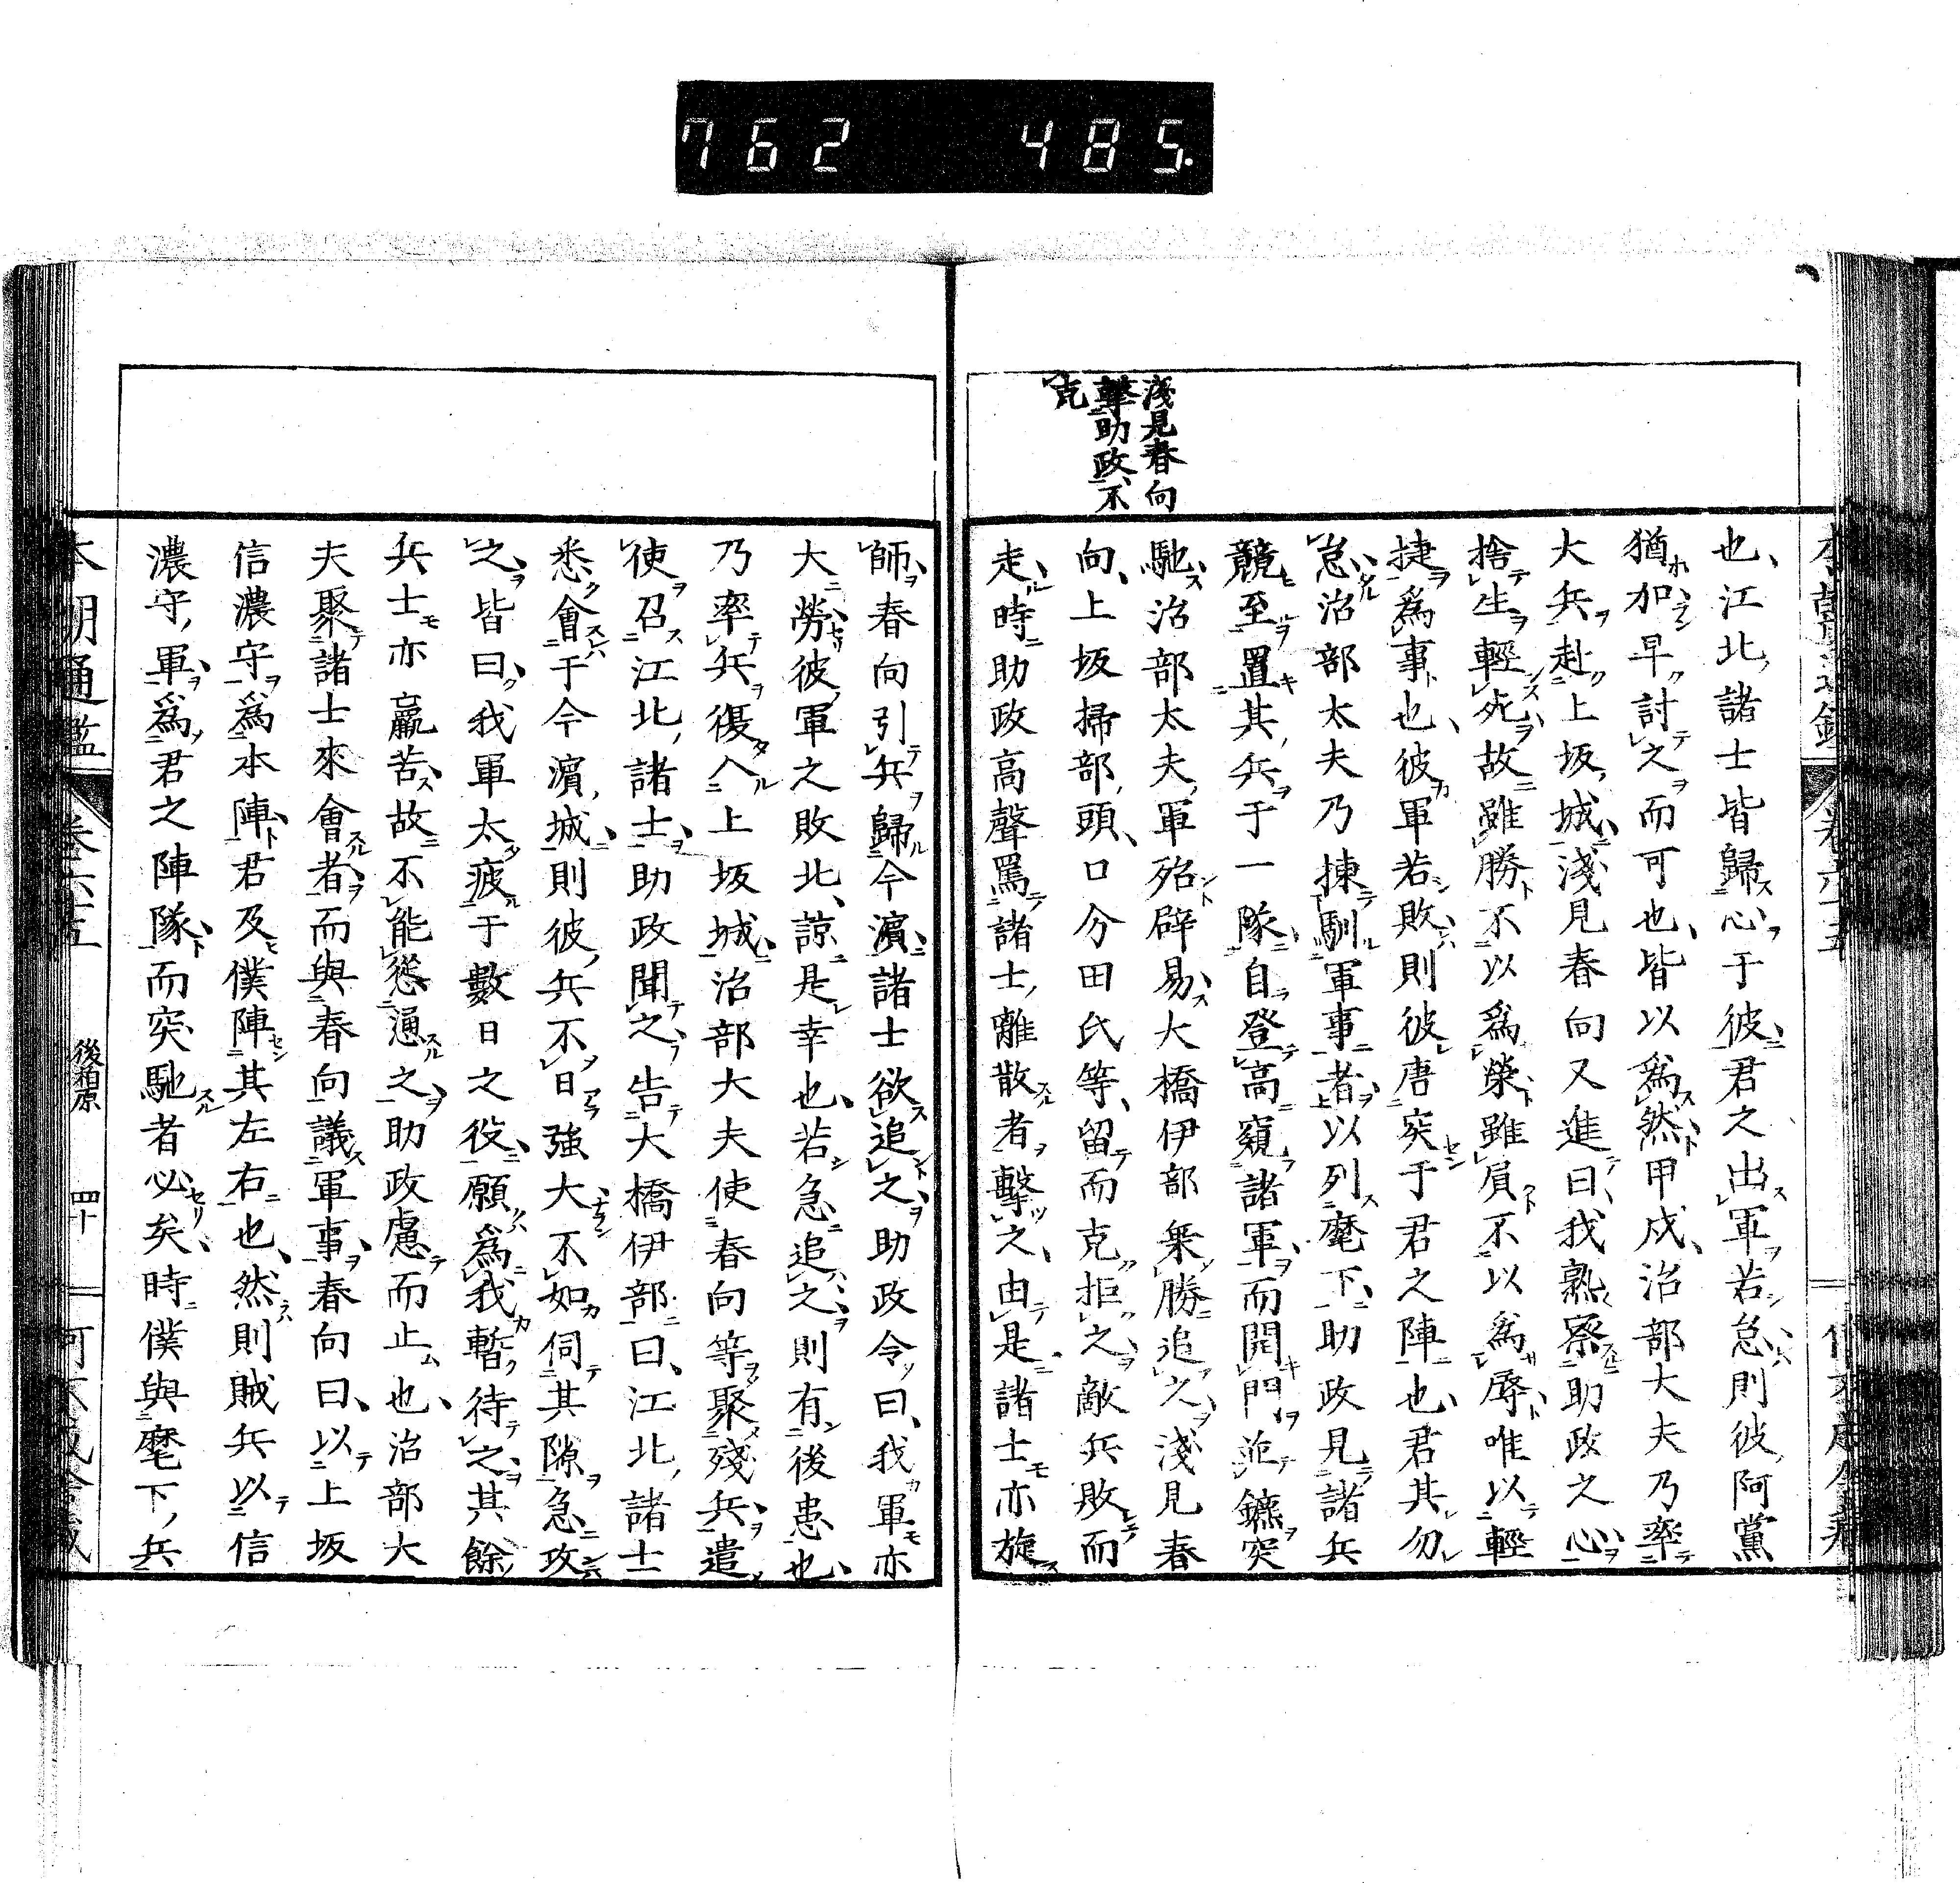 762 485.
淺見春向
擊助政、不
克
也、江北諸士皆歸心于彼君之出軍若怠則彼阿黨
猶加早討之而可也、皆以爲然甲戌、治部大夫乃率
大兵赴上坂城淺見春向又進曰、我熟察助政之心
捨生輕死故雖勝不以爲榮雖負不以爲辱唯以輕
捷爲事也、彼軍若敗則彼唐突于君之陣也、君其勿
怠治部太夫乃揀馴軍事者以列麾下、助政見諸兵
競至置其兵于一隊自登高窺諸軍而開門並鑣突
馳治部太夫軍殆辟易大橋伊部乘勝追之淺見春
向、上坂掃部頭、口分田氏等、留而克拒之敵兵敗而
走時助政高聲罵諸士離散者擊之、由是諸士亦旋
師春向引兵歸今濱諸士欲追之助政令曰、我軍亦
大勞彼軍之敗北、諒是幸也、若急追之則有後患也、
乃率兵復入上坂城治部大夫使春向等聚殘兵遣
使召江北諸士助政聞之告大橋伊部曰、江北諸士
悉會于今濱城則彼兵不日強大不如伺其隙急攻
之皆曰、我軍太疲于數日之役願爲我暫待之其餘
兵士亦羸苦故不能慫慂之助政慮而止也、治部大
夫聚諸士來會者而與春向議軍事春向曰、以上坂
信濃守爲本陣君及僕陣其左右也、然則賊兵以信
濃守軍爲君之陣隊而突馳者必矣、時僕與麾下兵
本朝通鑑 卷六十五 後柏原 四十